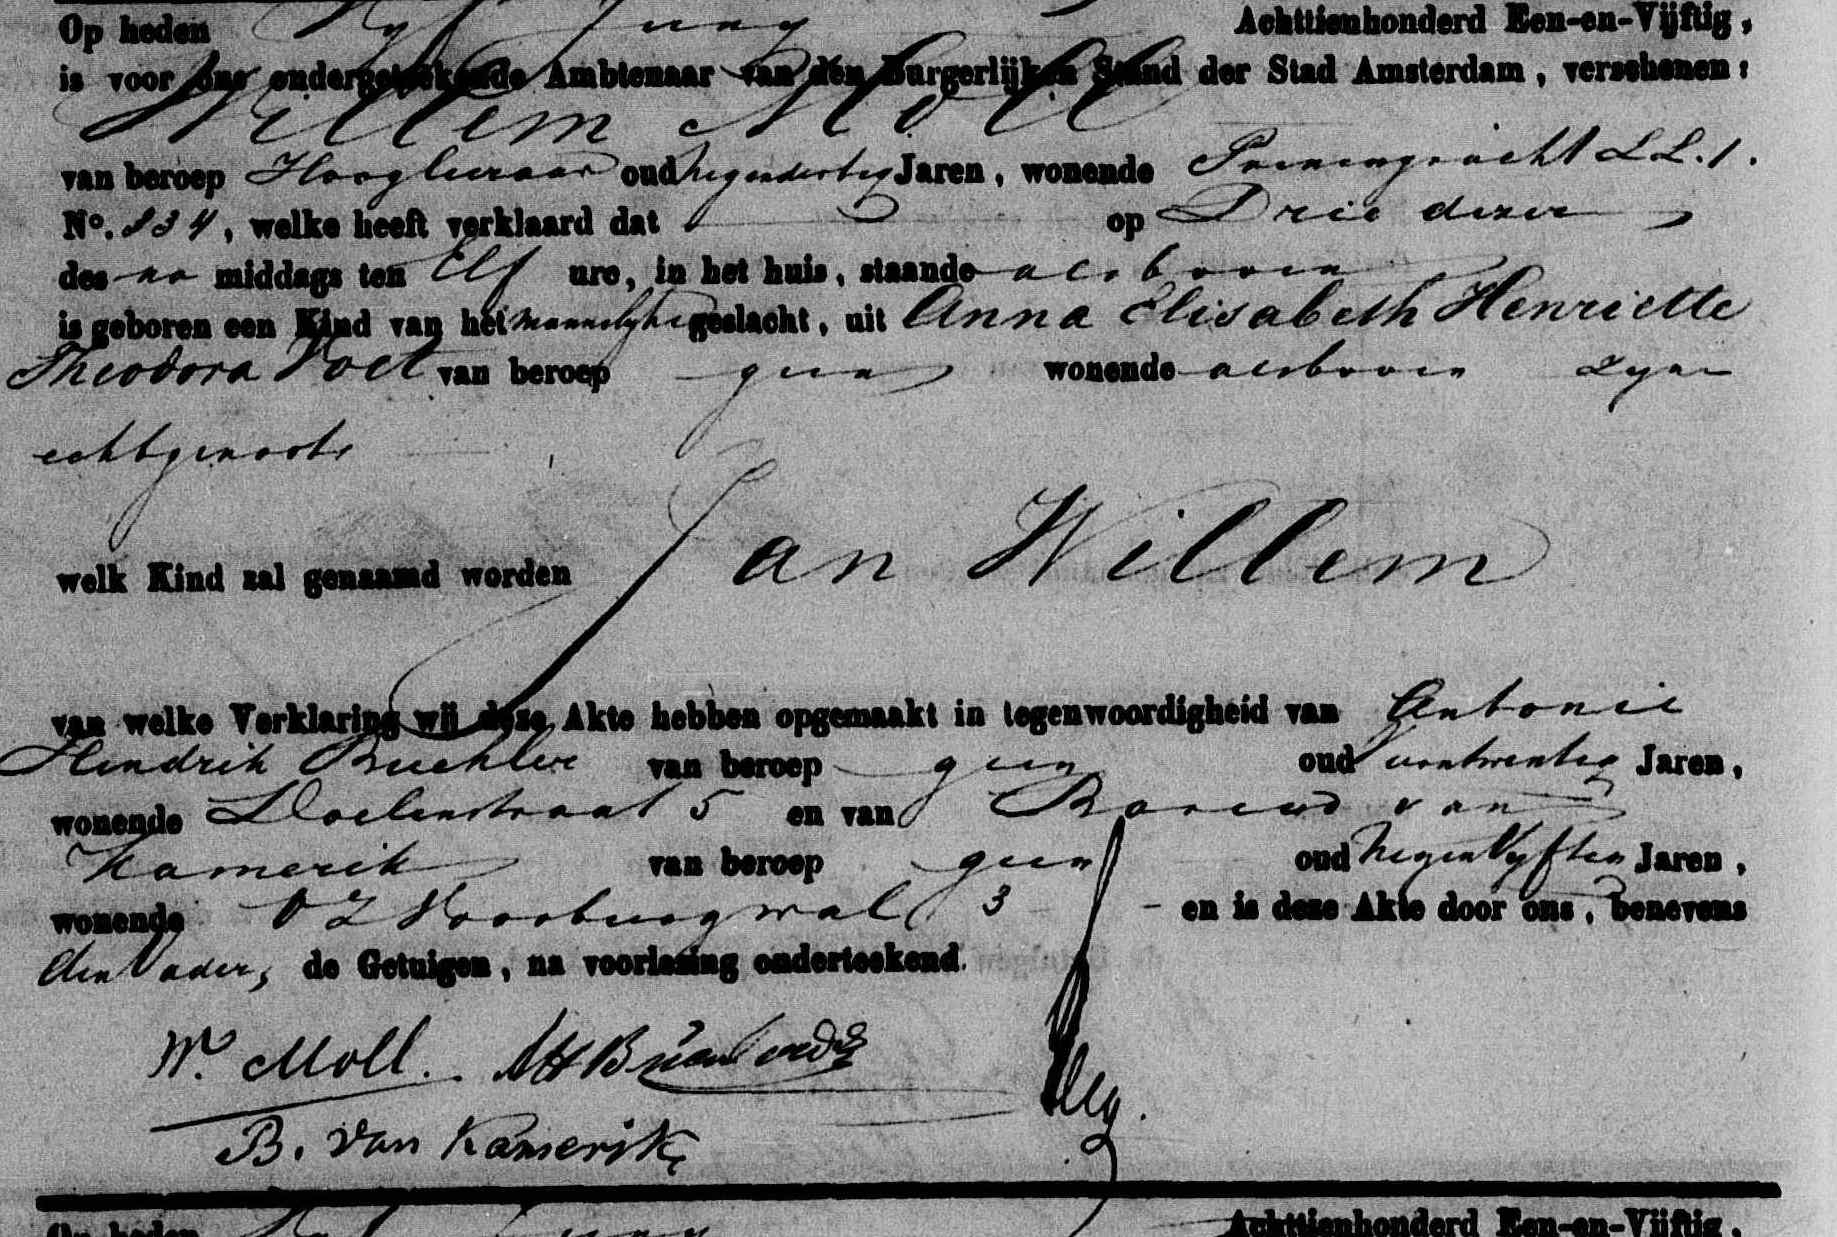 Op heden Vyf Juny Achttienhonderd Een-en-Vijftig,
is voor ons ondergeteekende Ambtenaar van den Burgerlijken Stand der Stad Amsterdam, verschenen:
Willem Moll
van beroep Hoogleeraar oud negendertig Jaren, wonende Prinsengracht LL.1.
No. 834, welke heeft verklaard dat op Drie dezer
des na middags ten Elf ure, in het huis, staande alsboven
is geboren een Kind van het mannelyke geslacht, uit Anna Elisabeth Henriette
Theodora Voet van beroep geen wonende alsboven zyne
echtgenoote
welk Kind zal genaamd worden Jan Willem
van welke Verklaring wij deze Akte hebben opgemaakt in tegenwoordigheid van Antonie
Hendrik van beroep geen oud Jaren,
wonende Doelenstraat 5 en van Barend van
Kamerik van beroep geen oud negen Vyftig Jaren,
wonende OZ Voorburgwal 3 en is deze Akte door ons, benevens
den Vader, de Getuigen, na voorlezing onderteekend.
Wm. Moll.
B. van Kamerik
Op heden Achttienhonderd Een-en-Vijftig,